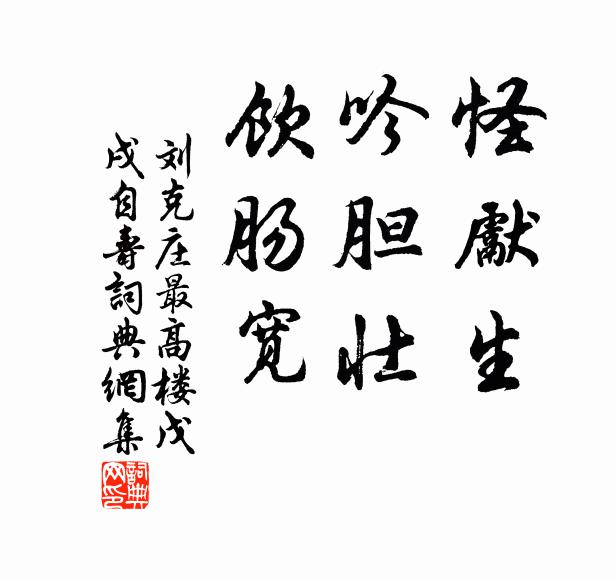 怪獻生
吟胆壮
飲肠宽
刘克庄最高楼戊
戌自壽詞典網集
詞典
网印